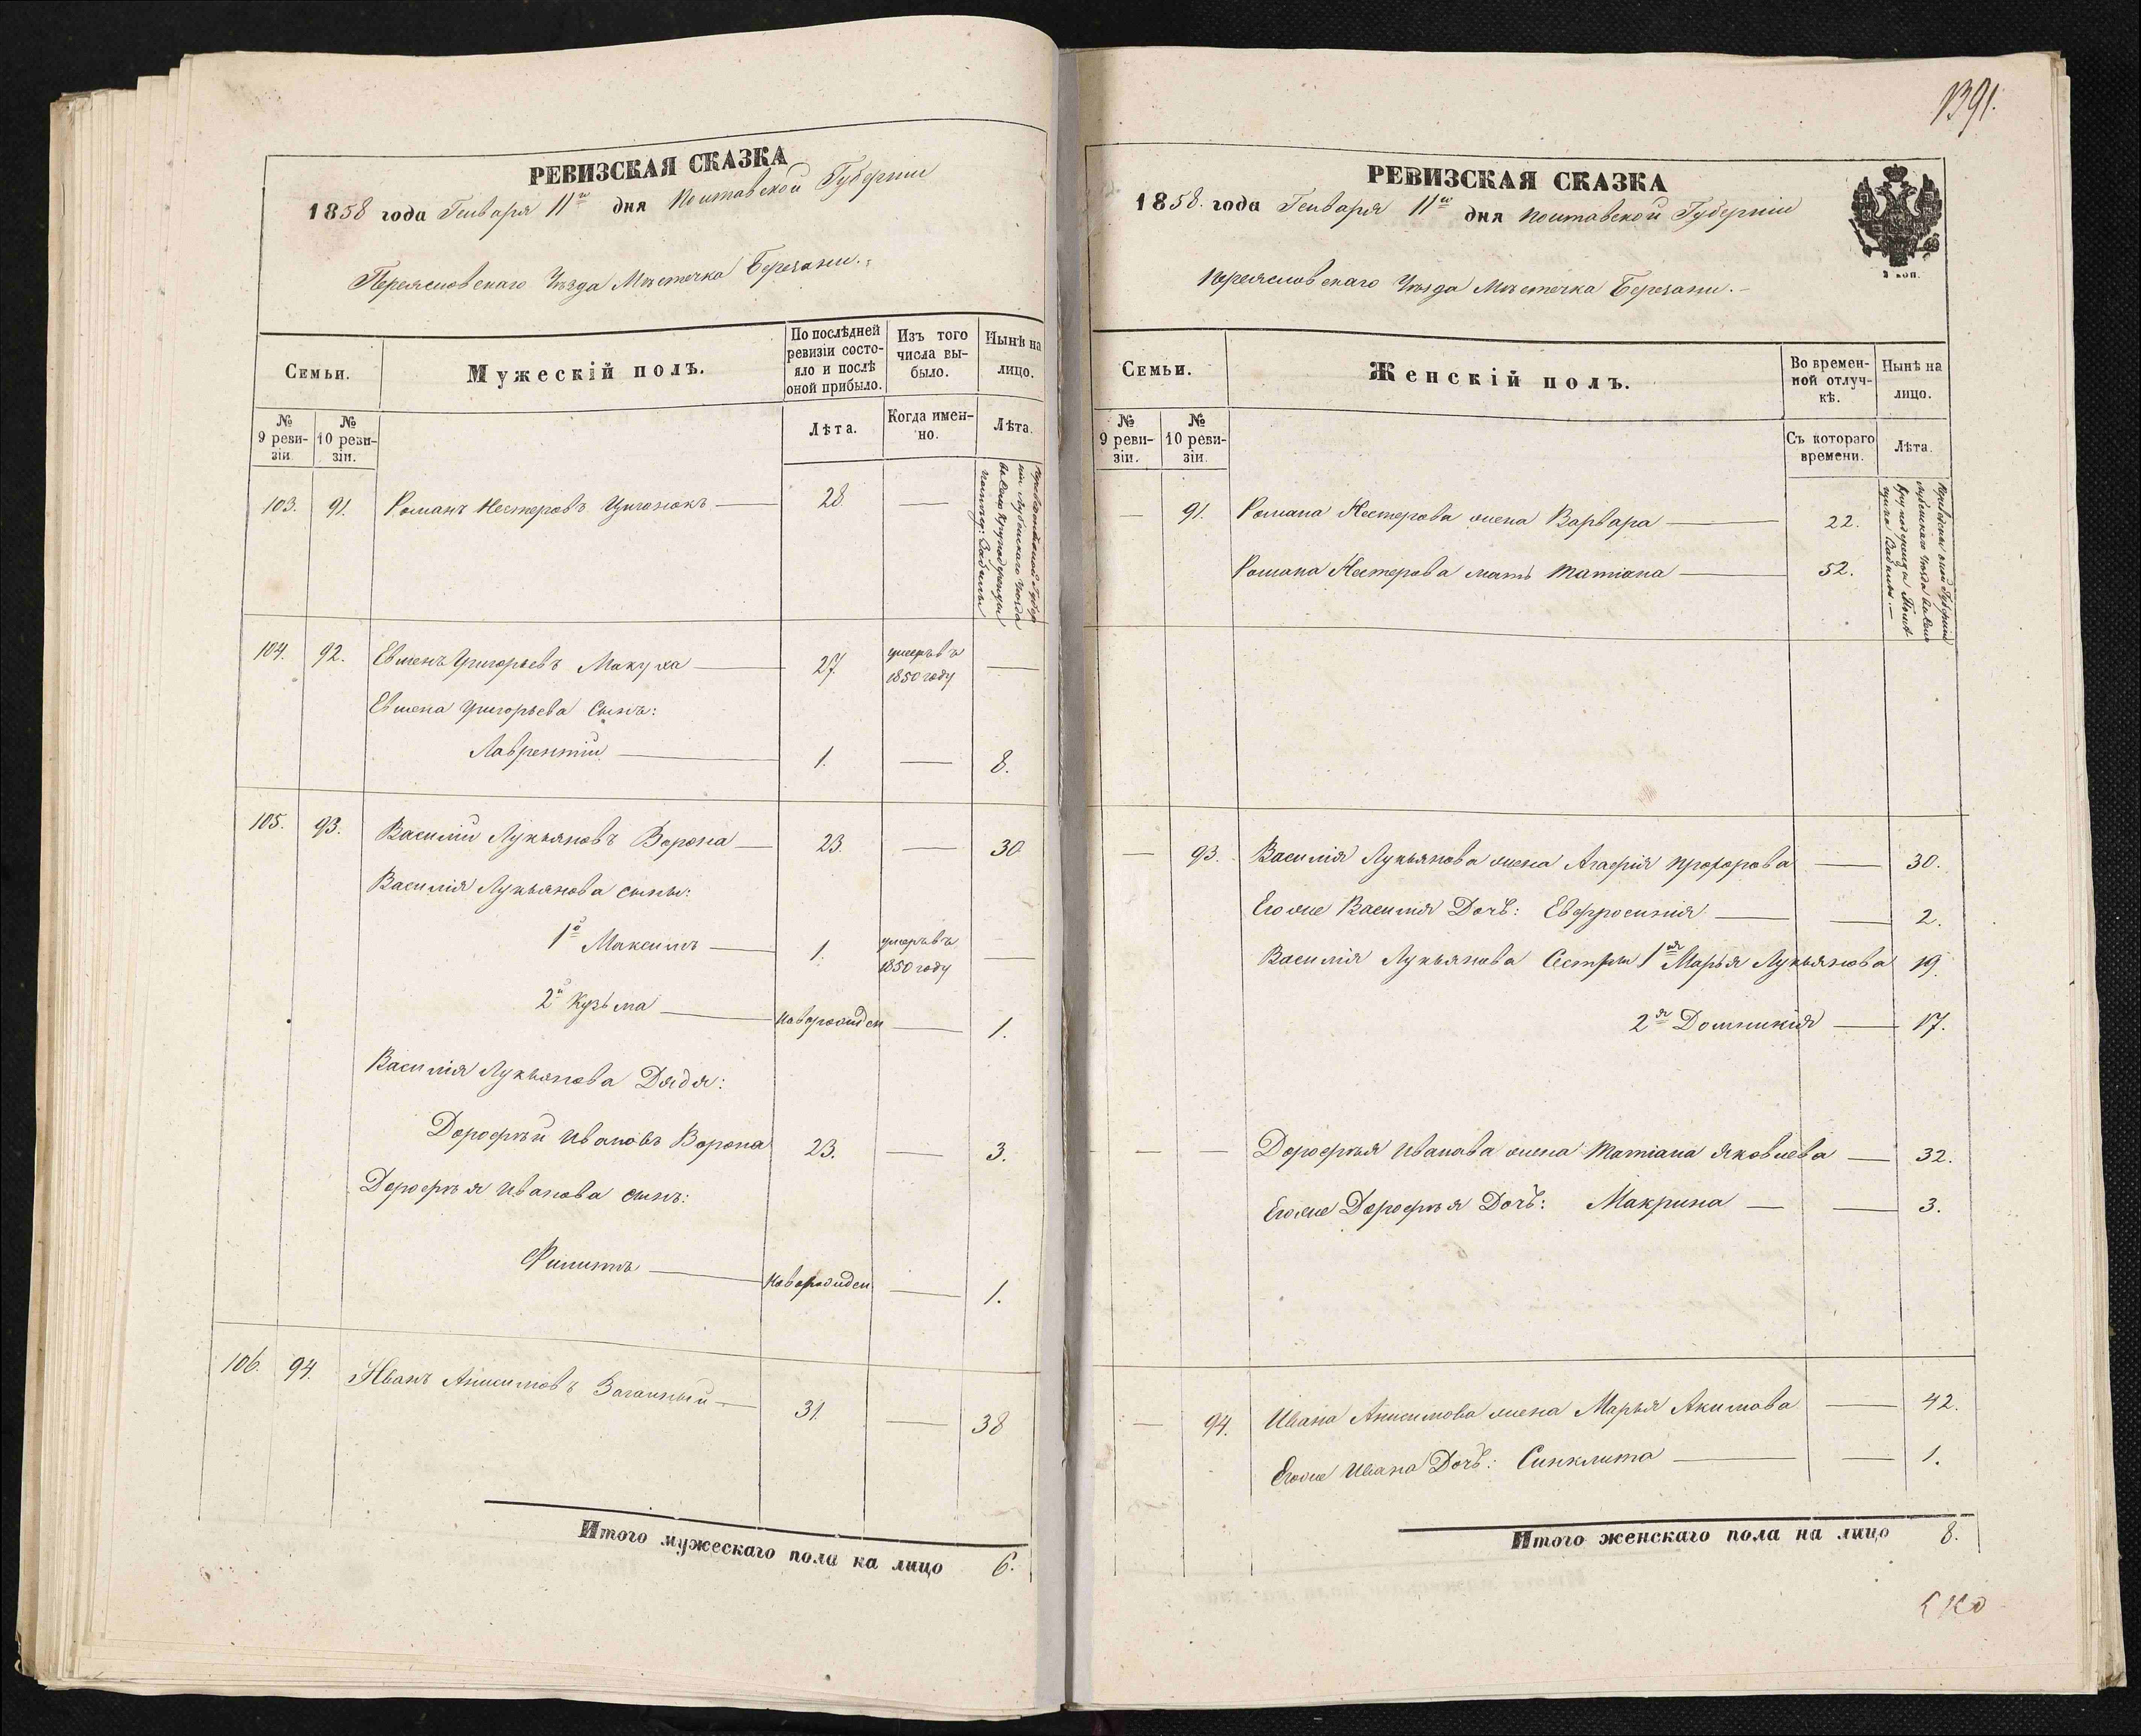 РЕВИЗСКАЯ СКАЗКА
1858 года Генваря 11го дня Полтавской Губерніи
Переяславскаго Уѣзда Мѣстечка Березани.
Семьи.
Мужескій полъ.
По послѣдней ревизіи состояло и послѣ оной прибыло.
Изъ того числа выбыло.
Нынѣ на лицо.
№ 9 ревизіи.
№ 10 ревизіи.
Лѣта.
Когда именно.
Лѣта.
103. 91. Романъ Нестеровъ 28. —
104. 92. Евменъ Григорьевъ Макуха — 27. умеръ въ 1850 году —
Евмена Григорьева Сынъ:
Лаврентій — 1. — 8.
105. 93. Василій Лукьяновъ Ворона — 23. — 30
Василія Лукьянова сыны:
1й Максимъ — 1. умеръ въ 1850 году —
2й Кузьма — Новорожден — 1.
Василія Лукьянова Дядя:
Дорофѣй Ивановъ Ворона 23. — 3.
Дорофѣя Иванова сынъ:
Филиппъ — Новорожден — 1.
106. 94. Иванъ Анисимовъ — 31. — 38
Итого мужескаго пола на лицо 6.
1391.
РЕВИЗСКАЯ СКАЗКА
1858. года Генваря 11го дня Полтавской Губерніи
Переяславскаго Уѣзда Мѣстечка Березани. —
Семьи.
Женскій полъ.
Во временной отлучкѣ.
Нынѣ на лицо.
№ 9 ревизіи.
№ 10 ревизіи.
Съ котораго времени.
Лѣта.
— 91. Романа Нестерова жена Варвара — 22.
Романа Нестерова мать Татіана — 52.
— 93. Василія Лукьянова жена Агафія Прохорова — 30.
Егоже Василія Дочь: Евфросинія — — 2.
Василія Лукьянова Сестры 1я Марья Лукьянова 19.
2я Домникія — 17.
— — Дорофѣя Иванова жена Татіана Яковлева — 32.
Егоже Дорофѣя Дочь: Макрина — — 3.
— 94. Ивана Анисимова жена Марья Акимова — 42.
Егоже Ивана Дочь: Синклита — — 1.
Итого женскаго пола на лицо 8.